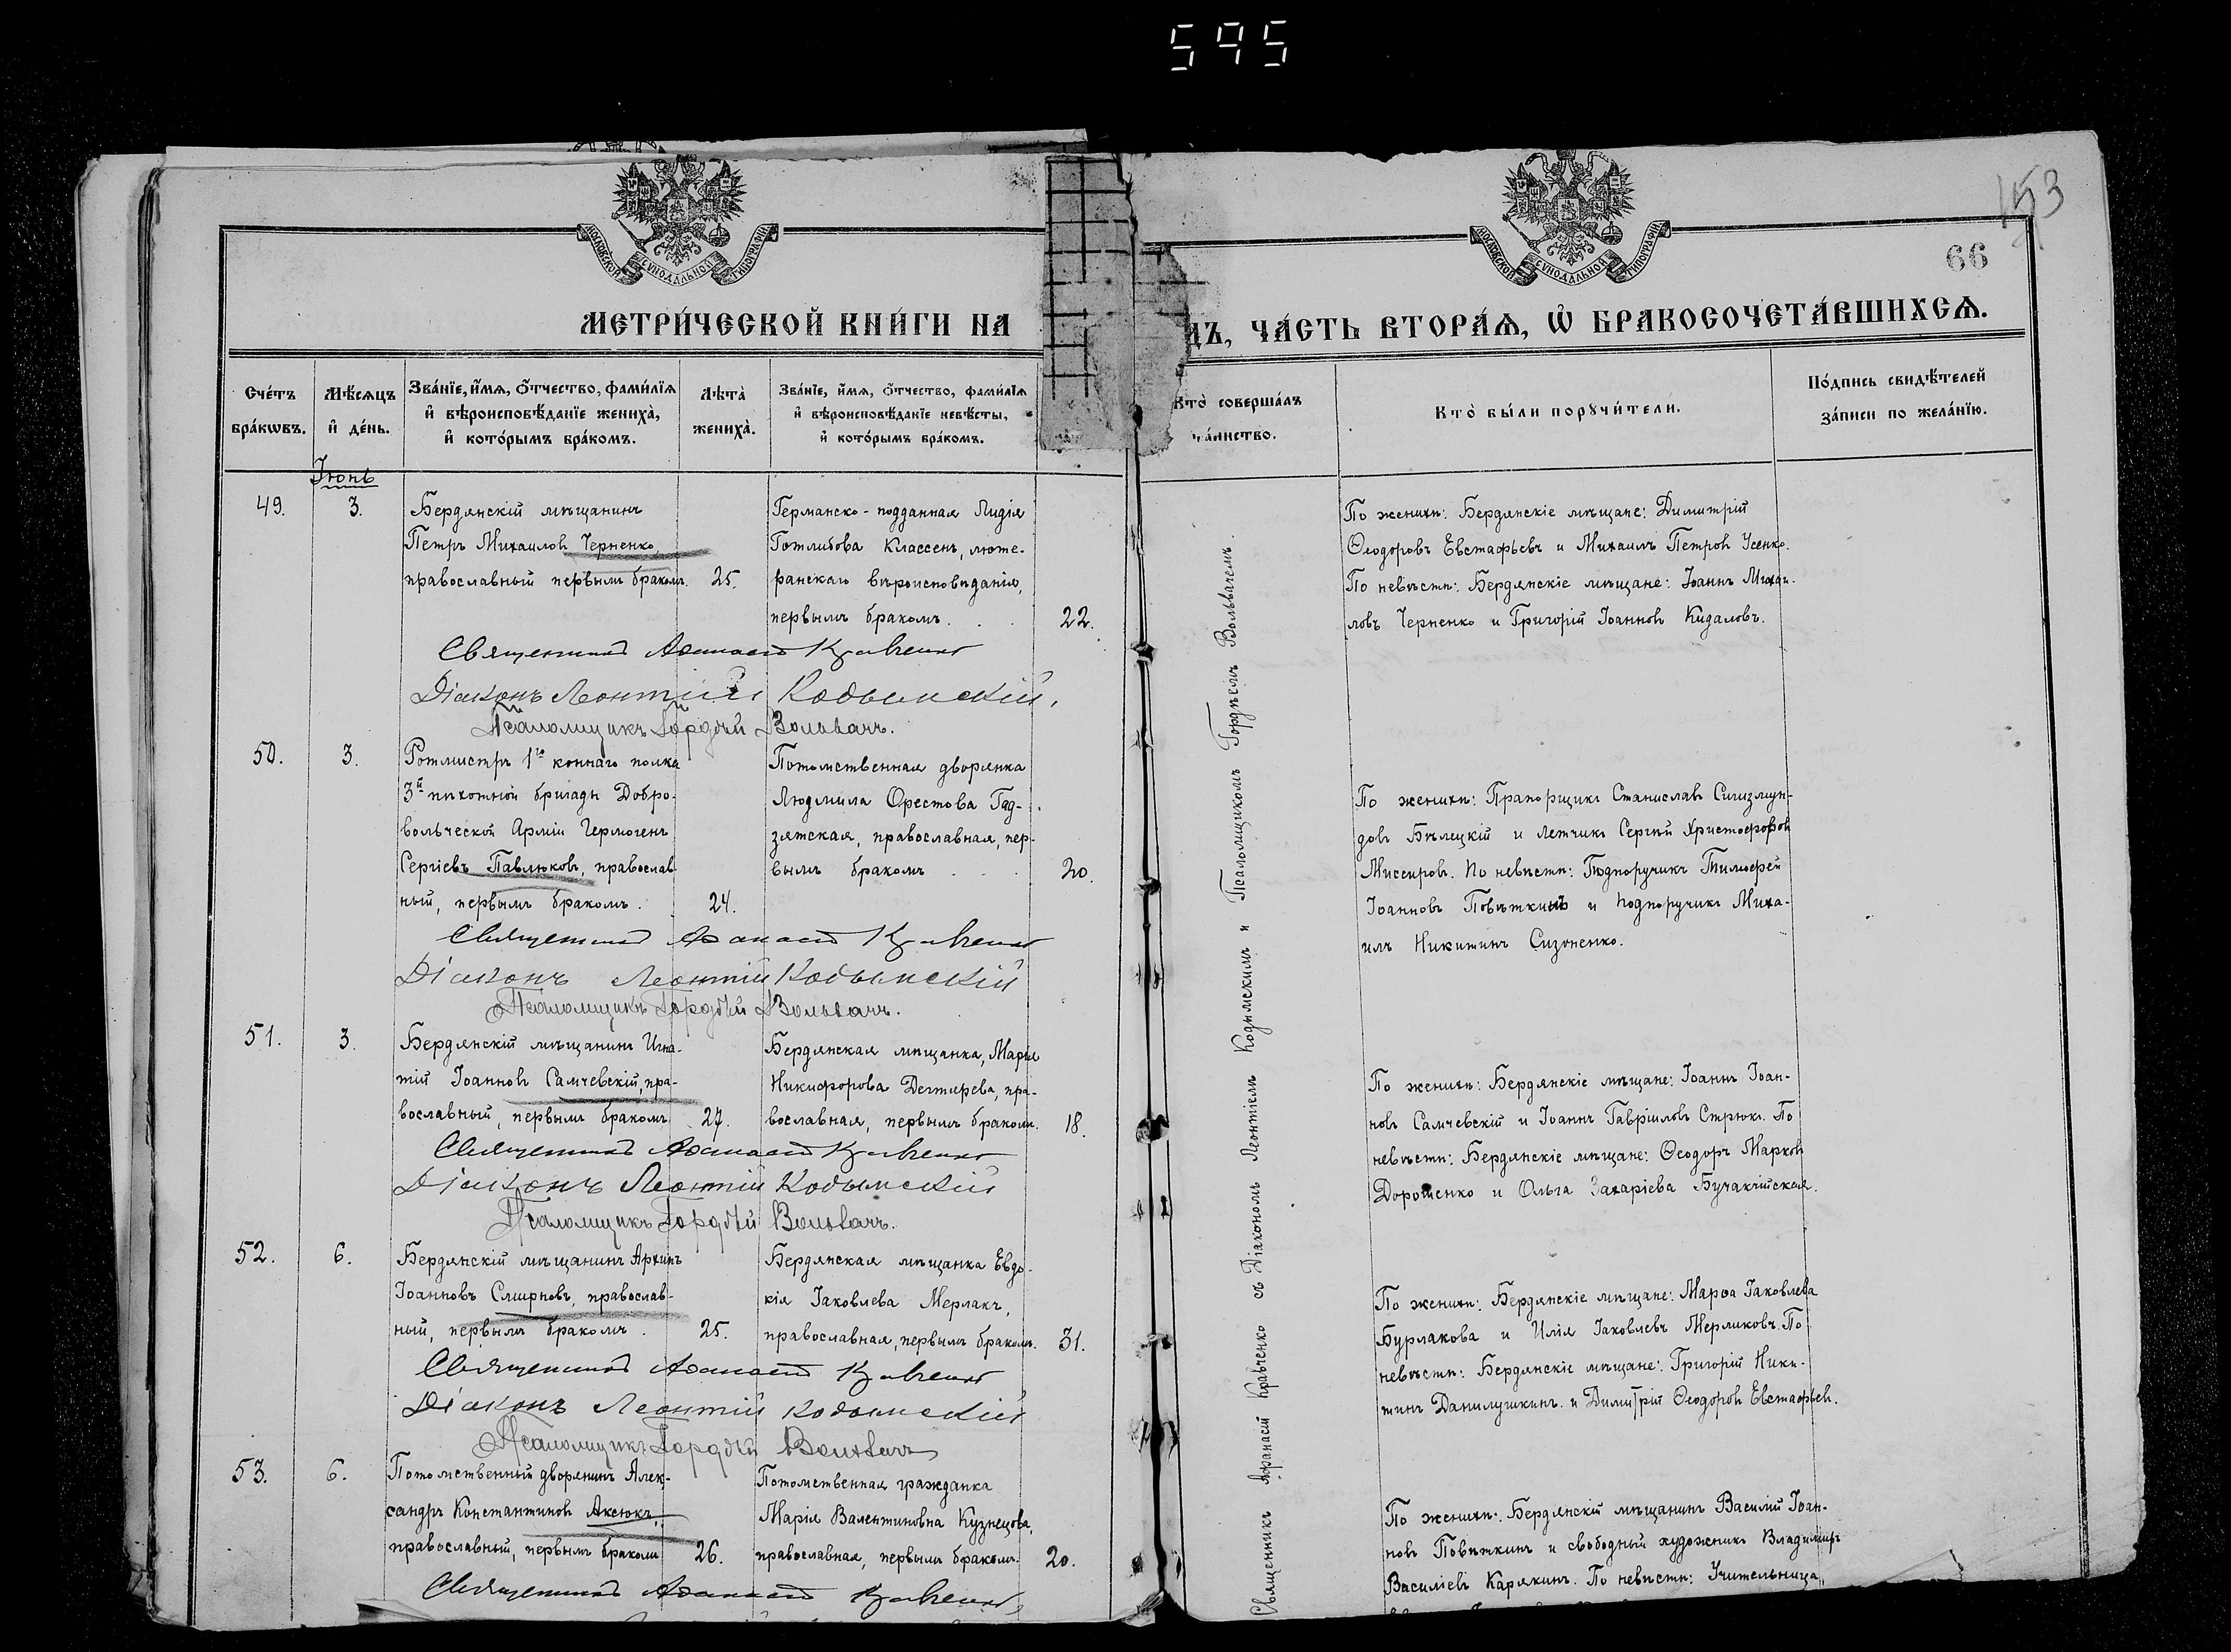 595
153
66
МОСКОВСКОЙ СѴНОДАЛЬНОЙ ТИПОГРАФІИ
МОСКОВСКОЙ СѴНОДАЛЬНОЙ ТИПОГРАФІИ
МЕТРИ́ЧЕСКОЙ КНИ́ГИ НА
ДЪ, ЧА́СТЬ ВТОРА́Ѧ, Ѡ҆ БРАКОСОЧЕТА́ВШИХСѦ.
Сче́тъ бра́кѡвъ.
Мѣ́сяцъ и҆ де́нь.
Зва́нїе, и҆́мя, ѻ҆́тчество, фами́лїя и҆ вѣроисповѣ́данїе жениха̀, и҆ кото́рымъ бра́комъ.
Лѣта̀ жениха̀.
Зва́нїе, и҆́мя, ѻ҆́тчество, фами́лїя и҆ вѣроисповѣ́данїе невѣ́сты, и҆ кото́рымъ бра́комъ.
Кто̀ соверша́лъ та́инство.
Кто̀ бы́ли порꙋчи́тели.
По́дпись свидѣ́телей за́писи по жела́нїю.
Іюнь
49.
3.
Бердянскій мѣщанинъ
Петръ Михаиловъ Черненко,
православный первымъ бракомъ.
25.
Германско-подданная Лидія
Готлибова Классенъ, люте-
ранскаго вѣроисповѣданія,
первымъ бракомъ.
22.
По женихѣ: Бердянскіе мѣщане: Димитрій
Ѳеодоровъ Евстафьевъ и Михаилъ Петровъ Усенко.
По невѣстѣ: Бердянскіе мѣщане: Іоаннъ Михаи-
ловъ Черненко и Григорій Іоанновъ Кидаловъ.
Священникъ Аѳанасій Кравченко
Діаконъ Леонтій Кодымскій,
Псаломщикъ Гордѣй Вольвачъ.
50.
3.
Ротмистръ 1го коннаго полка
3й пѣхотной бригады Добро-
вольческой Арміи Гермогенъ
Сергіевъ Павлюковъ, православ-
ный, первымъ бракомъ.
24.
Потомственная дворянка
Людмила Орестова Гад-
зятская, православная, пер-
вымъ бракомъ
20.
По женихѣ: Прапорщикъ Станиславъ Сигизмун-
довъ Бѣлецкій и летчикъ Сергѣй Христофоровъ
Миссировъ. По невѣстѣ: Подпоручикъ Тимофей
Іоанновъ Повѣткинъ и подпоручикъ Миха-
илъ Никитинъ Сизоненко.
Священникъ Аѳанасій Кравченко
Діаконъ Леонтій Кодымскій
Псаломщикъ Гордѣй Вольвачъ.
51.
3.
Бердянскій мѣщанинъ Игна-
тій Іоанновъ Самчевскій, пра-
вославный, первымъ бракомъ
27.
Бердянская мѣщанка, Марія
Никифорова Дегтярева, пра-
вославная, первымъ бракомъ.
18.
По женихѣ: Бердянскіе мѣщане: Іоаннъ Іоан-
новъ Самчевскій и Іоаннъ Гавріиловъ Стрюкъ. По
невѣстѣ: Бердянскіе мѣщане: Ѳеодоръ Марковъ
Дорошенко и Ольга Захаріева Бучакчійская.
Священникъ Аѳанасій Кравченко
Діаконъ Леонтій Кодымскій
Псаломщикъ Гордѣй Вольвачъ.
52.
6.
Бердянскій мѣщанинъ Архипъ
Іоанновъ Смирновъ, православ-
ный, первымъ бракомъ.
25.
Бердянская мѣщанка Евдо-
кія Іаковлева Мерлакъ,
православная, первымъ бракомъ.
31.
По женихѣ: Бердянскіе мѣщане: Марѳа Іаковлева
Бурлакова и Илія Іаковлевъ Мерликовъ. По
невѣстѣ: Бердянскіе мѣщане: Григорій Ники-
тинъ Данилушкинъ и Димитрій Ѳеодоровъ Евстафьев.
Священникъ Аѳанасій Кравченко
Діаконъ Леонтій Кодымскій
Псаломщикъ Гордѣй Вольвачъ
53.
6.
Потомственный дворянинъ Алек-
сандръ Константиновъ Аксюкъ,
православный, первымъ бракомъ
26.
Потомственная гражданка
Марія Валентиновна Кузнецова,
православная, первымъ бракомъ.
20.
По женихѣ: Бердянскій мѣщанинъ Василій Іоан-
новъ Повѣткинъ и свободный художникъ Владиміръ
Василіевъ Карякинъ. По невѣстѣ: Учительница
Священникъ Аѳанасій Кравченко
Священникъ Аѳанасій Кравченко съ Діакономъ Леонтіемъ Кодымскимъ и Псаломщикомъ Гордѣемъ Вольвачемъ.